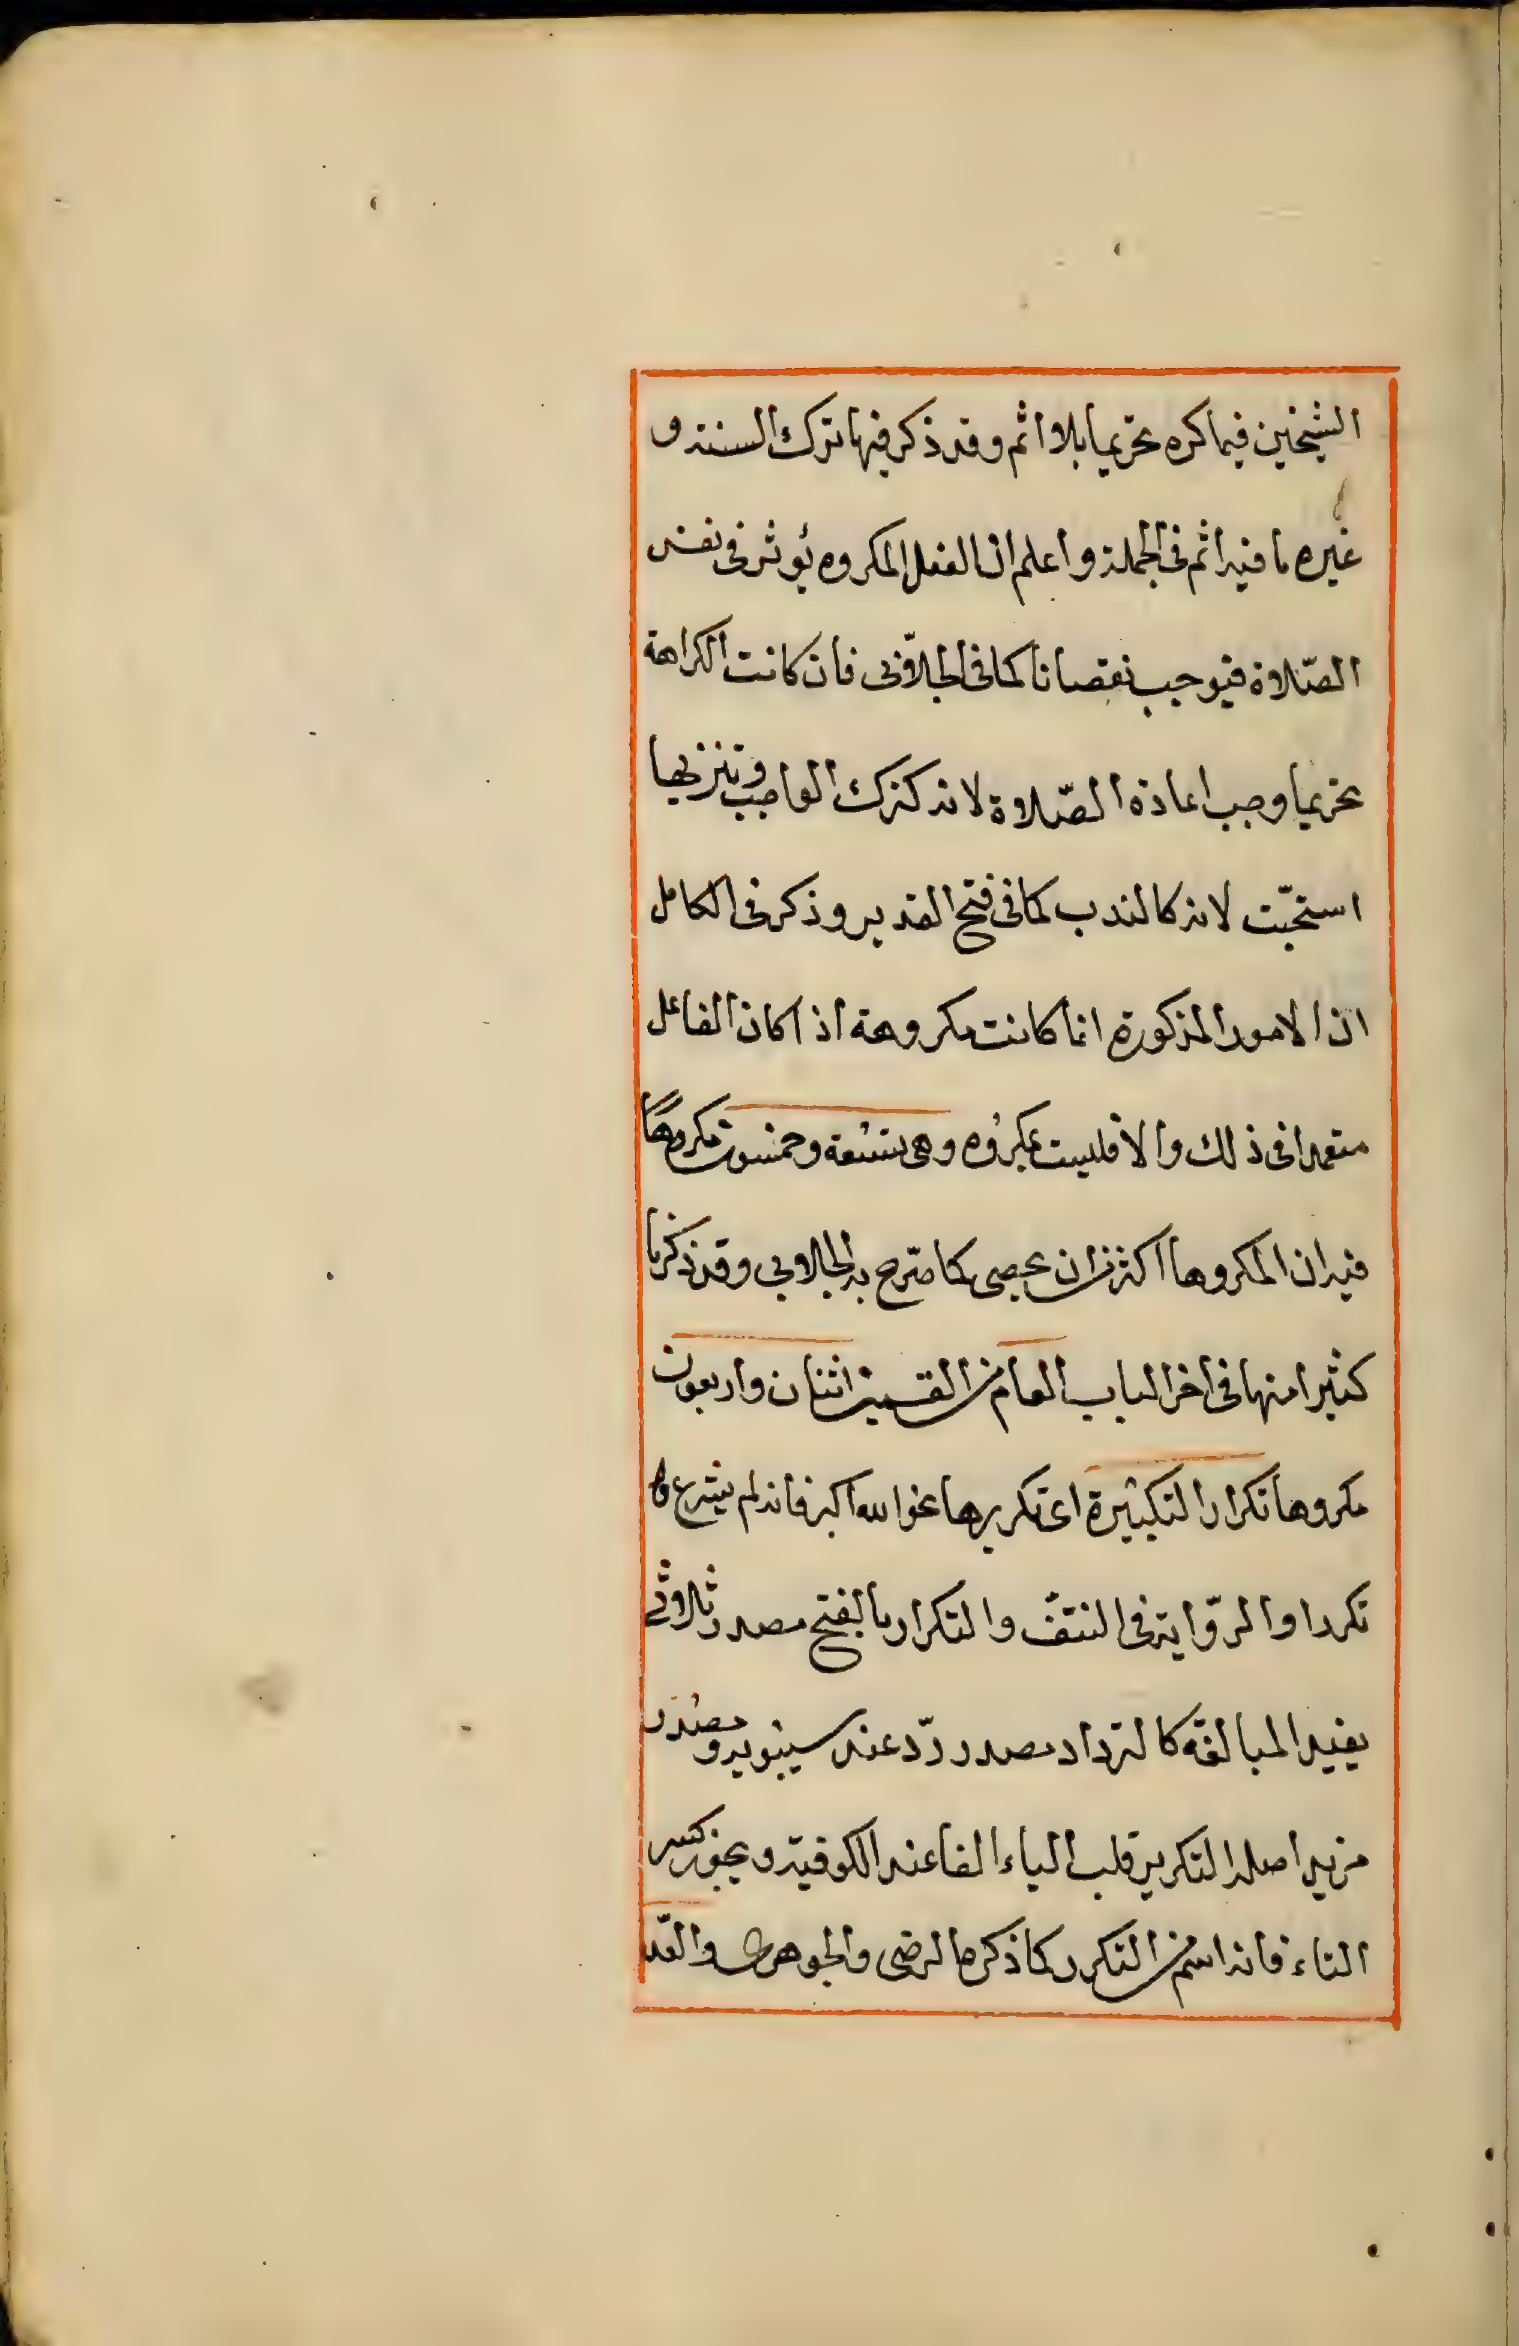 الشيخين فيما كره تحريما بلا اثم وقد ذكر فيها ترك السنة و
غيره ما فيه اثم في الجملة واعلم ان الفعل المكروه يؤثر في نفس
الصّلاة فيوجب نقصانا كما في الجلّابي فان كانت الكراهة
تحريما وجب اعادة الصّلاة لانه كترك الواجب وتنزيها
استحبّت لانه كالندب كما في فتح القدير وذكر في الكامل
ان الامور المذكورة انما كانت مكروهة اذا كان الفاعل
متعمدا في ذلك والا فليست بمكروه وهي تسعة وخمسون مكروها
فيه ان المكروها اكثر من ان يحصى كما صرّح به الجلابي وقد ذكرنا
كثيرا منها في اخر الباب العام من القسمين اثنان واربعون
مكروها تكرار التكبيرة اي تكريرها نحو الله اكبر فانه لم يشرع
تكردا والرّواية في النتف والتكرار بالفتح مصدر ثلاثي
يفيد المبالغة كالترداد مصدر ردّ عند سيبويه ومصدر
مزيد اصله التكرير قلب الياء الفا عند الكوفية ويجوز كسر
التاء فانه اسم من التكرر كما ذكره الرضي والجوهري والعّد